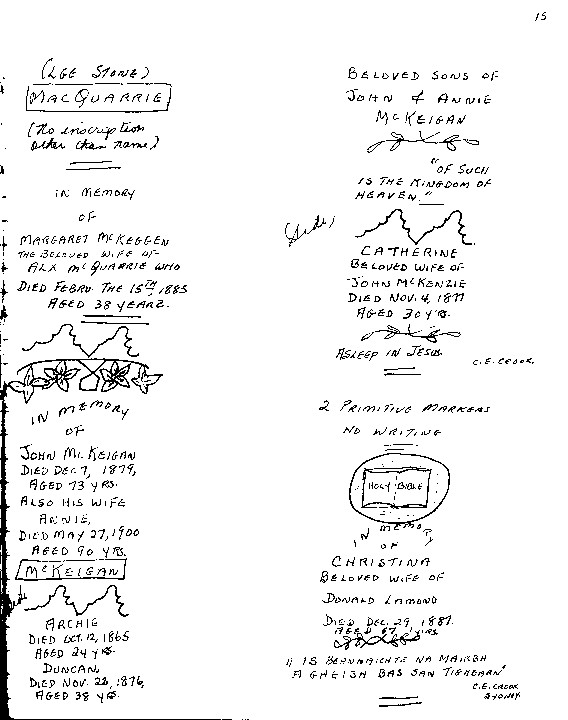 15
(LGE STONE)
MACQUARRIE
(No inscription
other than name)
IN MEMORY
OF
MARGARET MCKEGGEN
THE BELOVED WIFE OF
ALX MCQUARRIE WHO
DIED FEBRU. THE 15TH, 1885
AGED 38 YEARZ.
IN MEMORY
OF
JOHN MC. KEIGAN
DIED DEC. 7, 1879,
AGED 73 YRS.
ALSO HIS WIFE
ANNIE,
DIED MAY 27, 1900
AGED 90 YRS.
MCKEIGAN
ARCHIE
DIED OCT. 12, 1865
AGED 24 YRS.
DUNCAN,
DIED NOV. 28, 1876,
AGED 38 YRS.
BELOVED SONS OF
JOHN & ANNIE
MCKEIGAN
"OF SUCH
IS THE KINGDOM OF
HEAVEN."
(Side)
CATHERINE
BELOVED WIFE OF
JOHN MCKENZIE
DIED NOV. 4, 1877
AGED 30 YRS.
ASLEEP IN JESUS.
C.E. CROOK.
2 PRIMITIVE MARKERS
NO WRITING
HOLY BIBLE
IN MEMORY
OF
CHRISTINA
BELOVED WIFE OF
DONALD LAMOND
DIED DEC. 29, 1887.
AGED 67 YRS.
IS BEANNAICHTE NA MAIRBH
A GHEIBH BAS SAN TIGHEARN"
C.E. CROOK
SYDNEY.